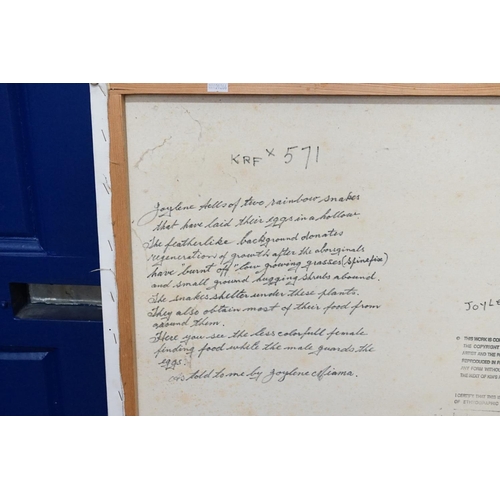 KRF x 571
Joylene tells of two rainbow snakes
that have laid their eggs in a hollow
The featherlike background donates
regenerations of growth after the aboriginals
have burnt off low growing grasses (spinafix)
and small ground hugging shrubs abound.
The snakes shelter under these plants.
They also obtain most of their food from
around them.
Here you see the less colorfull female
finding food while the male guards the
eggs.
as told to me by Joylene
JOYLE
© THIS WORK IS CO
THE COPYRIGHT
ARTIST AND THE
REPRODUCED IN
ANY FORM WITHOU
I CERTIFY THAT THIS